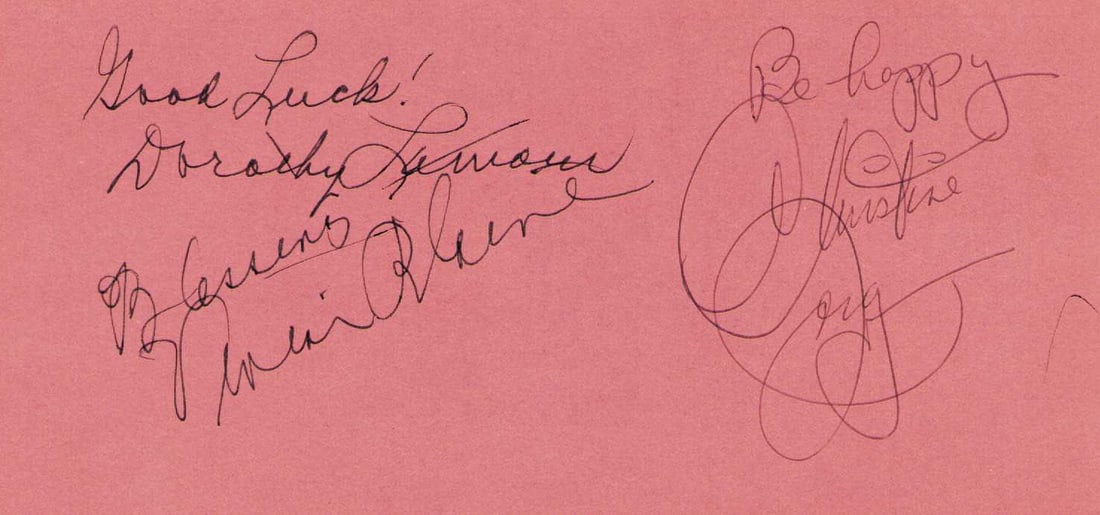 Good Luck!
Dorothy Lamour
Blessings
Vivian Blaine
Be happy
Christine